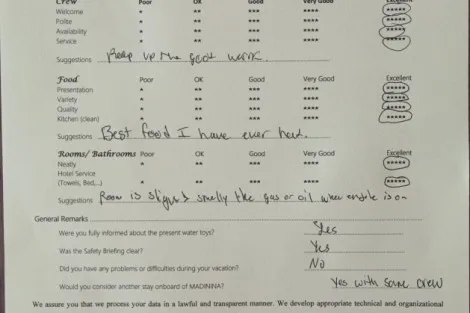 Crew Poor OK Good Very Good Excellent
Welcome * ** *** **** *****
Polite * ** *** **** *****
Availability * ** *** **** *****
Service * ** *** **** *****
Suggestions Keep up the good work.
Food Poor OK Good Very Good Excellent
Presentation * ** *** **** *****
Variety * ** *** **** *****
Quality * ** *** **** *****
Kitchen (clean) * ** *** **** *****
Suggestions Best food I have ever had.
Rooms/ Bathrooms Poor OK Good Very Good Excellent
Neatly * ** *** **** *****
Hotel Service
(Towels, Bed,..) * ** *** **** *****
Suggestions Room is smelly the gas or oil when engine is on
General Remarks
Were you fully informed about the present water toys? Yes
Was the Safety Briefing clear? Yes
Did you have any problems or difficulties during your vacation? No
Would you consider another stay onboard of MADININA? Yes with same crew
We assure you that we process your data in a lawful and transparent manner. We develop appropriate technical and organizational